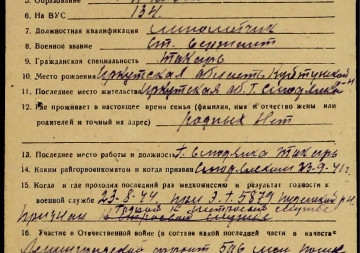 5. Образование
6. На ВУС 134
7. Должностная квалификация минометчик
8. Военное звание Ст. Сержант
9. Гражданская специальность Токарь
10. Место рождения Иркутская область Куйтунский
11. Последнее место жительства Иркутская об. г. Слюдянка
12. Где проживает в настоящее время семья (фамилия, имя и отчество жены или
родителей и точный их адрес)
родных Нет
13. Последнее место работы и должность г. Слюдянка Токарь
14. Каким райгорвоенкоматом и когда призван Слюдянским 23-9-41 г.
15. Когда и где проходил последний раз медкомиссию и результат годности к
военной службе 23-8-44 при Э.Г. 5879
признан Годный к
в строевой службе
16. Участие в Отечественной войне (в составе какой последней части и в качестве
Ленинградский фронт 546